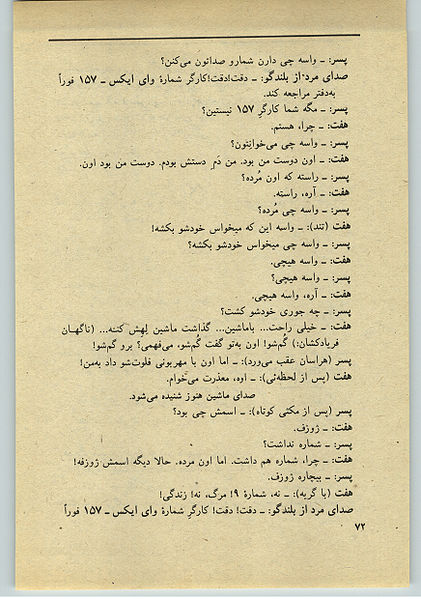 پسر: ـ واسه چی دارن شمارو صداتون می‌کنن؟
صدای مرد از بلندگو: ـ دقت!دقت!کارگر شمارهٔ وای ایکس ـ ۱۵۷ فوراً
به‌دفتر مراجعه کند.
پسر: ـ مگه شما کارگرِ ۱۵۷ نیستین؟
هفت: ـ چرا، هستم.
پسر: ـ واسه چی می‌خوانِتون؟
هفت: ـ اون دوست من بود. من دَمِ دستش بودم. دوست من بود اون.
پسر: ـ راسته که اون مُرده؟
هفت: ـ آره، راسته.
پسر: ـ واسه چی مُرده؟
هفت (تند): ـ واسه این که میخواس خودشو بکشه!
پسر: ـ واسه چی میخواس خودشو بکشه؟
هفت: ـ واسه هیچی.
پسر: ـ واسه هیچی؟
هفت: ـ آره، واسه هیچی.
پسر: ـ چه جوری خودشو کشت؟
هفت: ـ خیلی راحت... باماشین... گذاشت ماشین لِهِش کنـه... (ناگهـان
فریادکشان:) گُم‌شو! اون به‌تو گفت گُم‌شو، می‌فهمی؟ برو گم‌شو!
پسر (هراسان عقب می‌ورد): ـ اما اون با مهربونی فلوت‌شو داد به‌من!
هفت (پس از لحظه‌ئی): ـ اوه، معذرت می‌خوام.
صدای ماشین هنوز شنیده می‌شود.
پسر (پس از مکثی کوتاه): ـ اسمش چی بود؟
هفت: ـ ژوزف.
پسر: ـ شماره نداشت؟
هفت: ـ چرا، شماره هم داشت. اما اون مرده. حالا دیگه اسمش ژوزفه!
پسر: ـ بیچاره ژوزف.
هفت (با گریه): ـ نه، شمارهٔ ۹! مرگ، نه! زندگی!
صدای مرد از بلندگو: ـ دقت! دقت! کارگرِ شمارهٔ وای ایکس ـ ۱۵۷ فوراً
۷۲